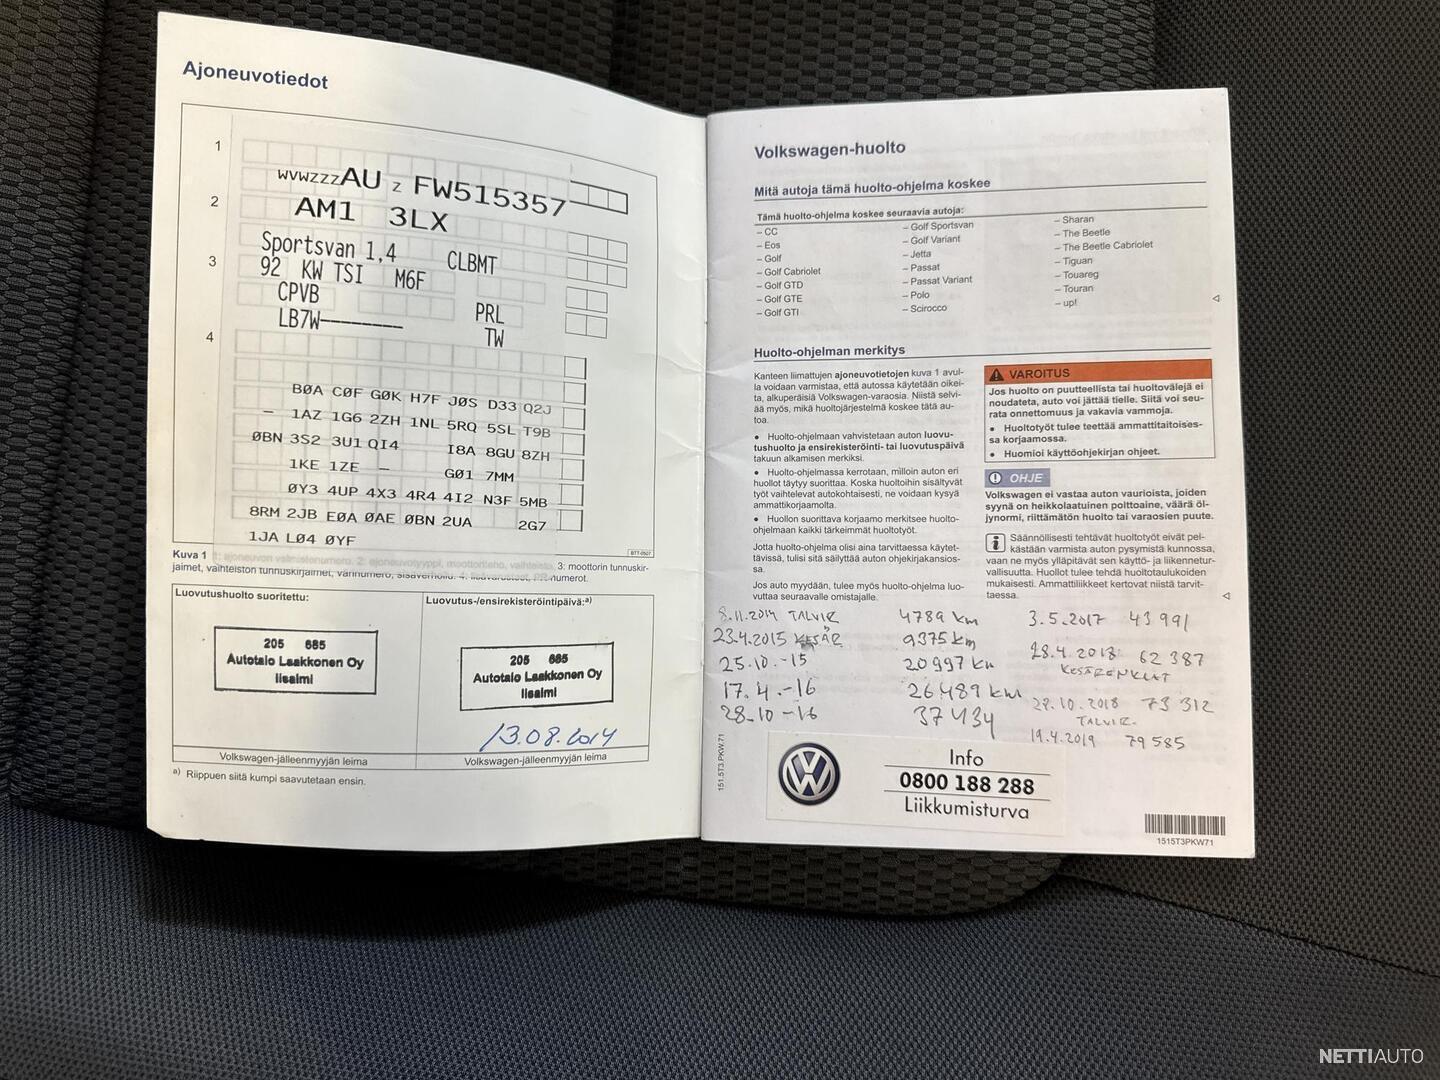 Ajoneuvotiedot
1
WVWZZZAU Z FW515357
2
AM1 3LX
3
Sportsvan 1,4 CLBMT
92 KW TSI M6F
CPVB PRL
LB7W---------- TW
4
BØA CØF GØK H7F JØS D33 Q2J
— 1AZ 1G6 2ZH 1NL 5RQ 5SL T9B
ØBN 3S2 3U1 QI4 I8A 8GU 8ZH
1KE 1ZE — GØ1 7MM
ØY3 4UP 4X3 4R4 4I2 N3F 5MB
8RM 2JB EØA ØAE ØBN 2UA 2G7
1JA LØ4 ØYF
BTT-0507
Kuva 1 1: ajoneuvon valmistenumero. 2: ajoneuvotyyppi, moottoriteho, vaihteisto. 3: moottorin tunnuskir-
jaimet, vaihteiston tunnuskirjaimet, värinumero, sisäverhoilu. 4: lisävarusteet, PR-numerot.
Luovutushuolto suoritettu:
205 685
Autotalo Laakkonen Oy
Iisalmi
Volkswagen-jälleenmyyjän leima
Luovutus-/ensirekisteröintipäivä:a)
205 685
Autotalo Laakkonen Oy
Iisalmi
13.08.2014
Volkswagen-jälleenmyyjän leima
a) Riippuen siitä kumpi saavutetaan ensin.
Volkswagen-huolto
Mitä autoja tämä huolto-ohjelma koskee
Tämä huolto-ohjelma koskee seuraavia autoja:
– CC
– Eos
– Golf
– Golf Cabriolet
– Golf GTD
– Golf GTE
– Golf GTI
– Golf Sportsvan
– Golf Variant
– Jetta
– Passat
– Passat Variant
– Polo
– Scirocco
– Sharan
– The Beetle
– The Beetle Cabriolet
– Tiguan
– Touareg
– Touran
– up!
Huolto-ohjelman merkitys
Kanteen liimattujen ajoneuvotietojen kuva 1 avul-
la voidaan varmistaa, että autossa käytetään oikei-
ta, alkuperäisiä Volkswagen-varaosia. Niistä selvi-
ää myös, mikä huoltojärjestelmä koskee tätä au-
toa.
● Huolto-ohjelmaan vahvistetaan auton luovu-
tushuolto ja ensirekisteröinti- tai luovutuspäivä
takuun alkamisen merkiksi.
● Huolto-ohjelmassa kerrotaan, milloin auton eri
huollot täytyy suorittaa. Koska huoltoihin sisältyvät
työt vaihtelevat autokohtaisesti, ne voidaan kysyä
ammattikorjaamolta.
● Huollon suorittava korjaamo merkitsee huolto-
ohjelmaan kaikki tärkeimmät huoltotyöt.
Jotta huolto-ohjelma olisi aina tarvittaessa käytet-
tävissä, tulisi sitä säilyttää auton ohjekirjakansios-
sa.
Jos auto myydään, tulee myös huolto-ohjelma luo-
vuttaa seuraavalle omistajalle.
VAROITUS
Jos huolto on puutteellista tai huoltovälejä ei
noudateta, auto voi jättää tielle. Siitä voi seu-
rata onnettomuus ja vakavia vammoja.
● Huoltotyöt tulee teettää ammattitaitoises-
sa korjaamossa.
● Huomioi käyttöohjekirjan ohjeet.
OHJE
Volkswagen ei vastaa auton vaurioista, joiden
syynä on heikkolaatuinen polttoaine, väärä öl-
jynormi, riittämätön huolto tai varaosien puute.
Säännöllisesti tehtävät huoltotyöt eivät pel-
kästään varmista auton pysymistä kunnossa,
vaan ne myös ylläpitävät sen käyttö- ja liikennetur-
vallisuutta. Huollot tulee tehdä huoltotaulukoiden
mukaisesti. Ammattiliikkeet kertovat niistä tarvit-
taessa.
8.11.2014 TALVIR 4789 km
23.4.2015 KESÄR 9375 km
25.10.-15 20997 km
17.4.-16 26489 km
28.10-16 37434
3.5.2017 43991
28.4.2018 62387
KESÄRENKAAT
27.10.2018 73312
TALVIR.
19.4.2019 79585
151.5T3.PKW.71
Info
0800 188 288
Liikkumisturva
1515T3PKW71
NETTIAUTO